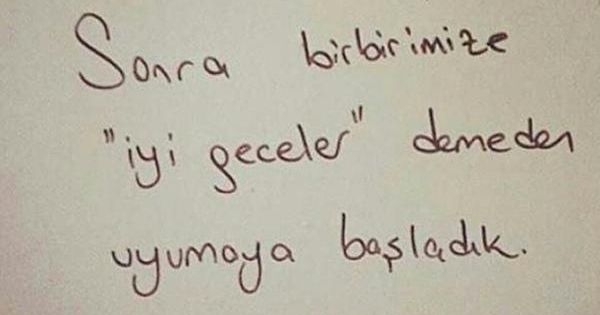 Sonra birbirimize
"iyi geceler" demeden
uyumaya başladık.